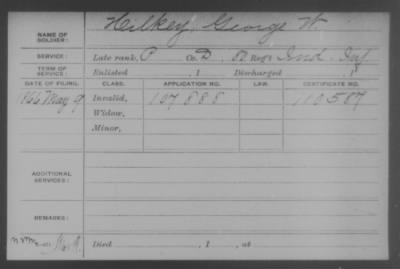 NAME OF SOLDIER: Hilkey, George W.
SERVICE: Late rank, P Co. D, Ind. Inf
TERM OF SERVICE: Enlisted , 1 Discharged , 1
DATE OF FILING. CLASS. APPLICATION NO. LAW. CERTIFICATE NO.
1866 May 9 Invalid, 107888 110587
Widow,
Minor,
ADDITIONAL SERVICES:
REMARKS:
Died , 1 , at